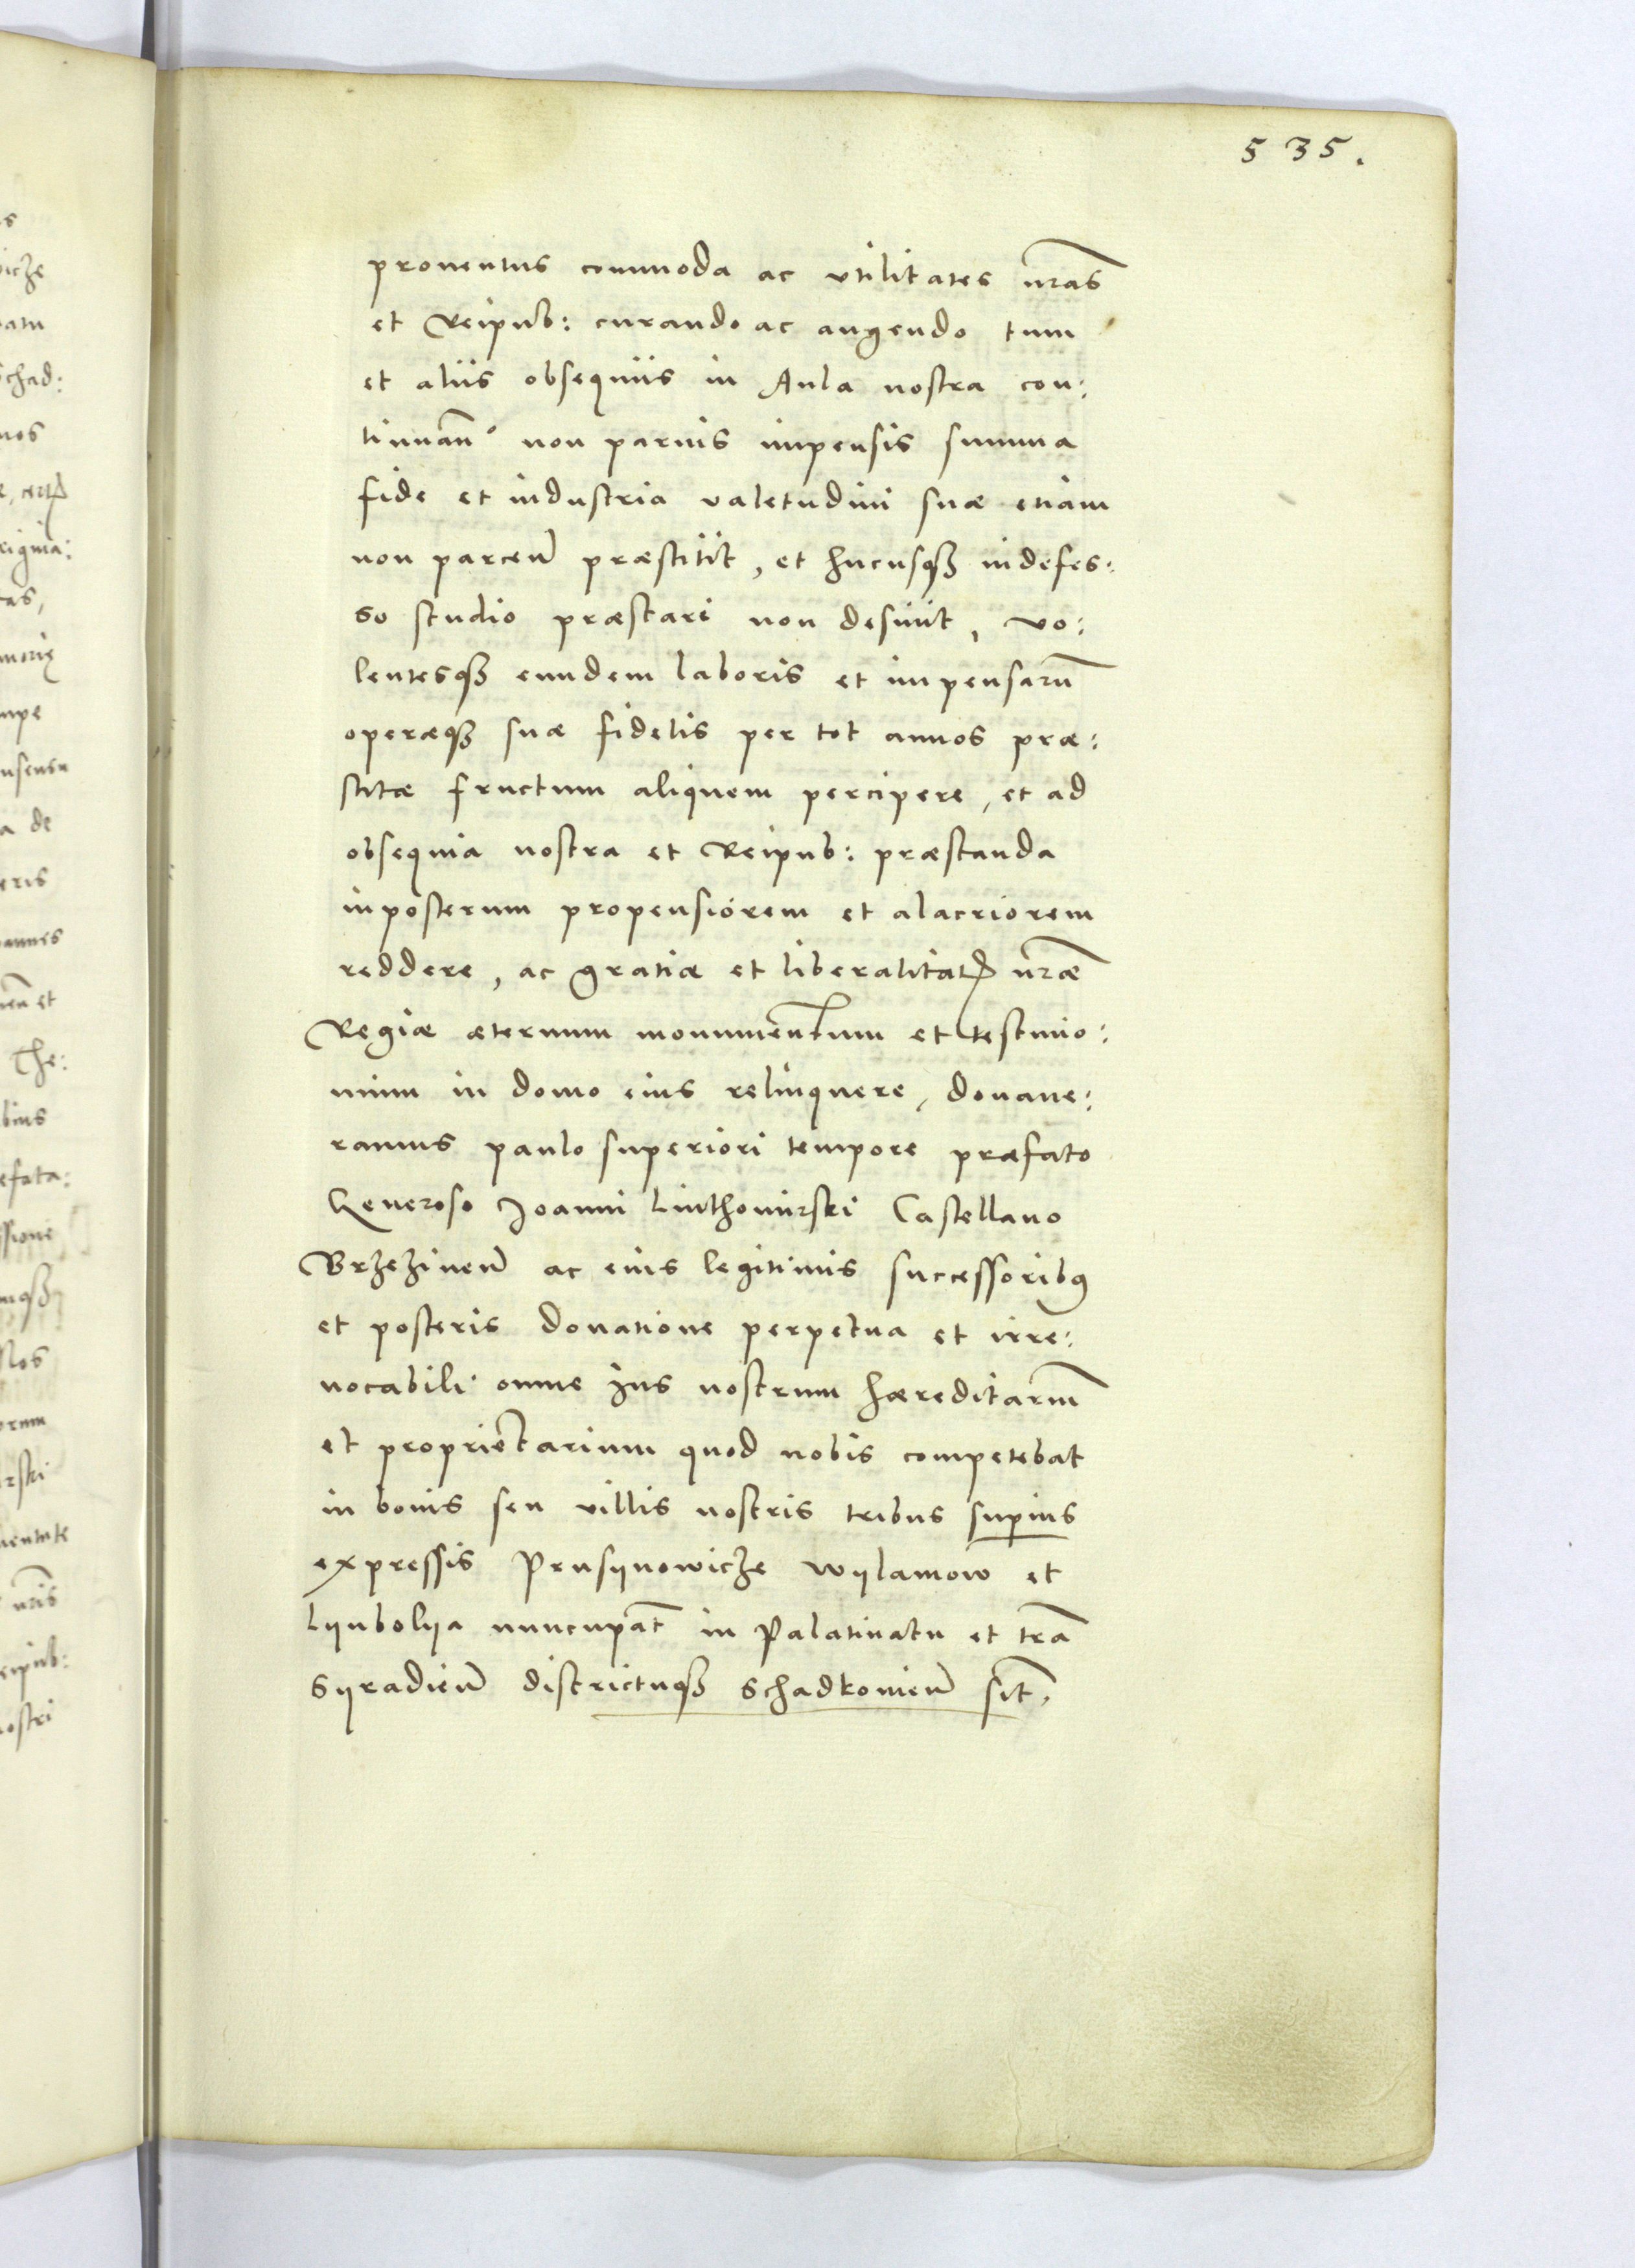 535.
prouentus commoda ac vtilitates nras
et Reipub: curando ac augendo tum
et aliis obsequiis in Aula nostra con:
tinuan° non paruis impensis summa
fide et industria valetudini suæ etiam
non parcen præstitit, et hucusqꝫ indefes:
so studio præstari non desinit, vo:
lentesqꝫ eundem laboris et impensaru
operæqꝫ suæ fidelis per tot annos præ:
stitæ fructum aliquem percipere, et ad
obsequia nostra et Reipub: præstanda
inposterum propensiorem et alacriorem
reddere, ac gratiæ et liberalitatꝭ nræ
Regiæ æternum monumentum et testimo:
nium in domo eius relinquere, donaue:
ramus paulo superiori tempore præfato
Generoso Joanni Linthomirski Castellano
Brzezinen ac eius legitimis successoribꝰ
et posteris donatione perpetua et irre:
uocabili omne ius nostrum hæreditarium
et proprietarium quod nobis competebat
in bonis seu villis nostris tribus supius
expressis Prusynowicze Wylamow et
Lynbolya nuncupat in Palatinatu et tra
Syradien districtuqꝫ Schadkouien sit,